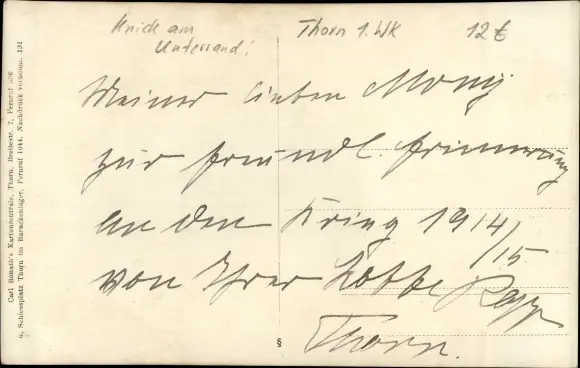 Knick am
Unterrand!
Thorn 1. WK
12€
Meiner lieben Mony
zur freundl. Erinnerung
an den Krieg 1914/
/15
von Ihrer Lotte Rapp
Thorn.
§
Carl Bonath's Kartenzentrale, Thorn, Breitestr. 2, Fernruf
u. Schiessplatz Thorn im Barackenlager, Fernruf 1044. Nachdruck verboten. 191